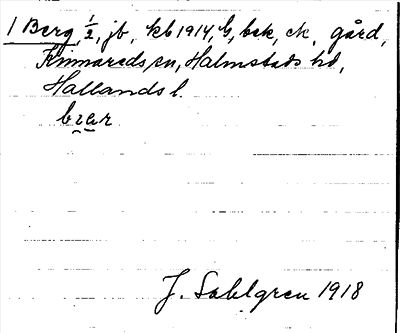 1 Berg, ½, jb, kb 1914, G, bsk, ek, gård,
Kinnareds sn, Halmstads hd,
Hallands l.
bærær
J. Sahlgren 1918